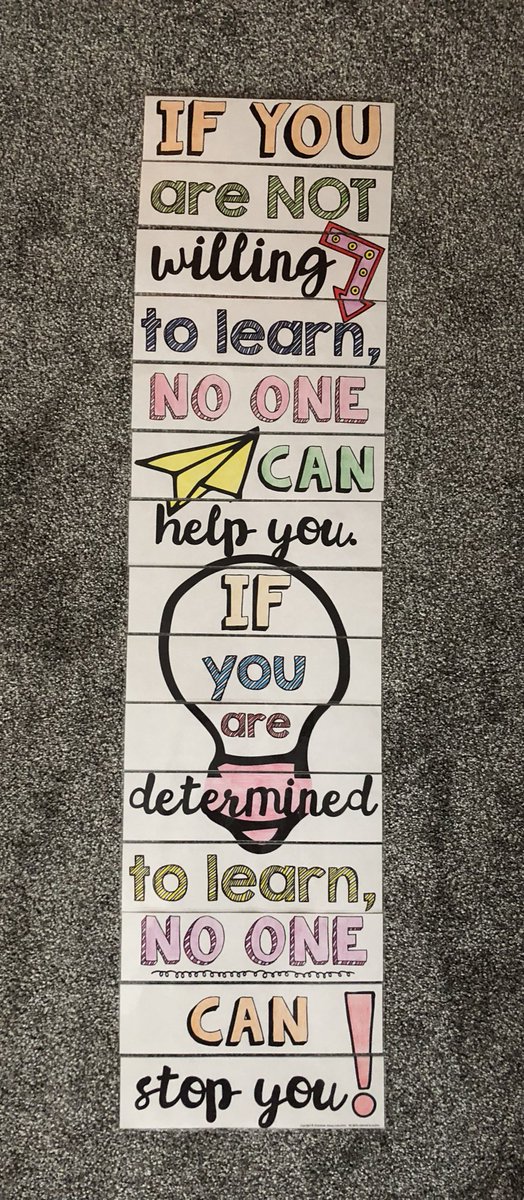 IF YOU
are NOT
willing
to learn,
NO ONE
CAN
help you.
IF
you
are
determined
to learn,
NO ONE
CAN
stop you!